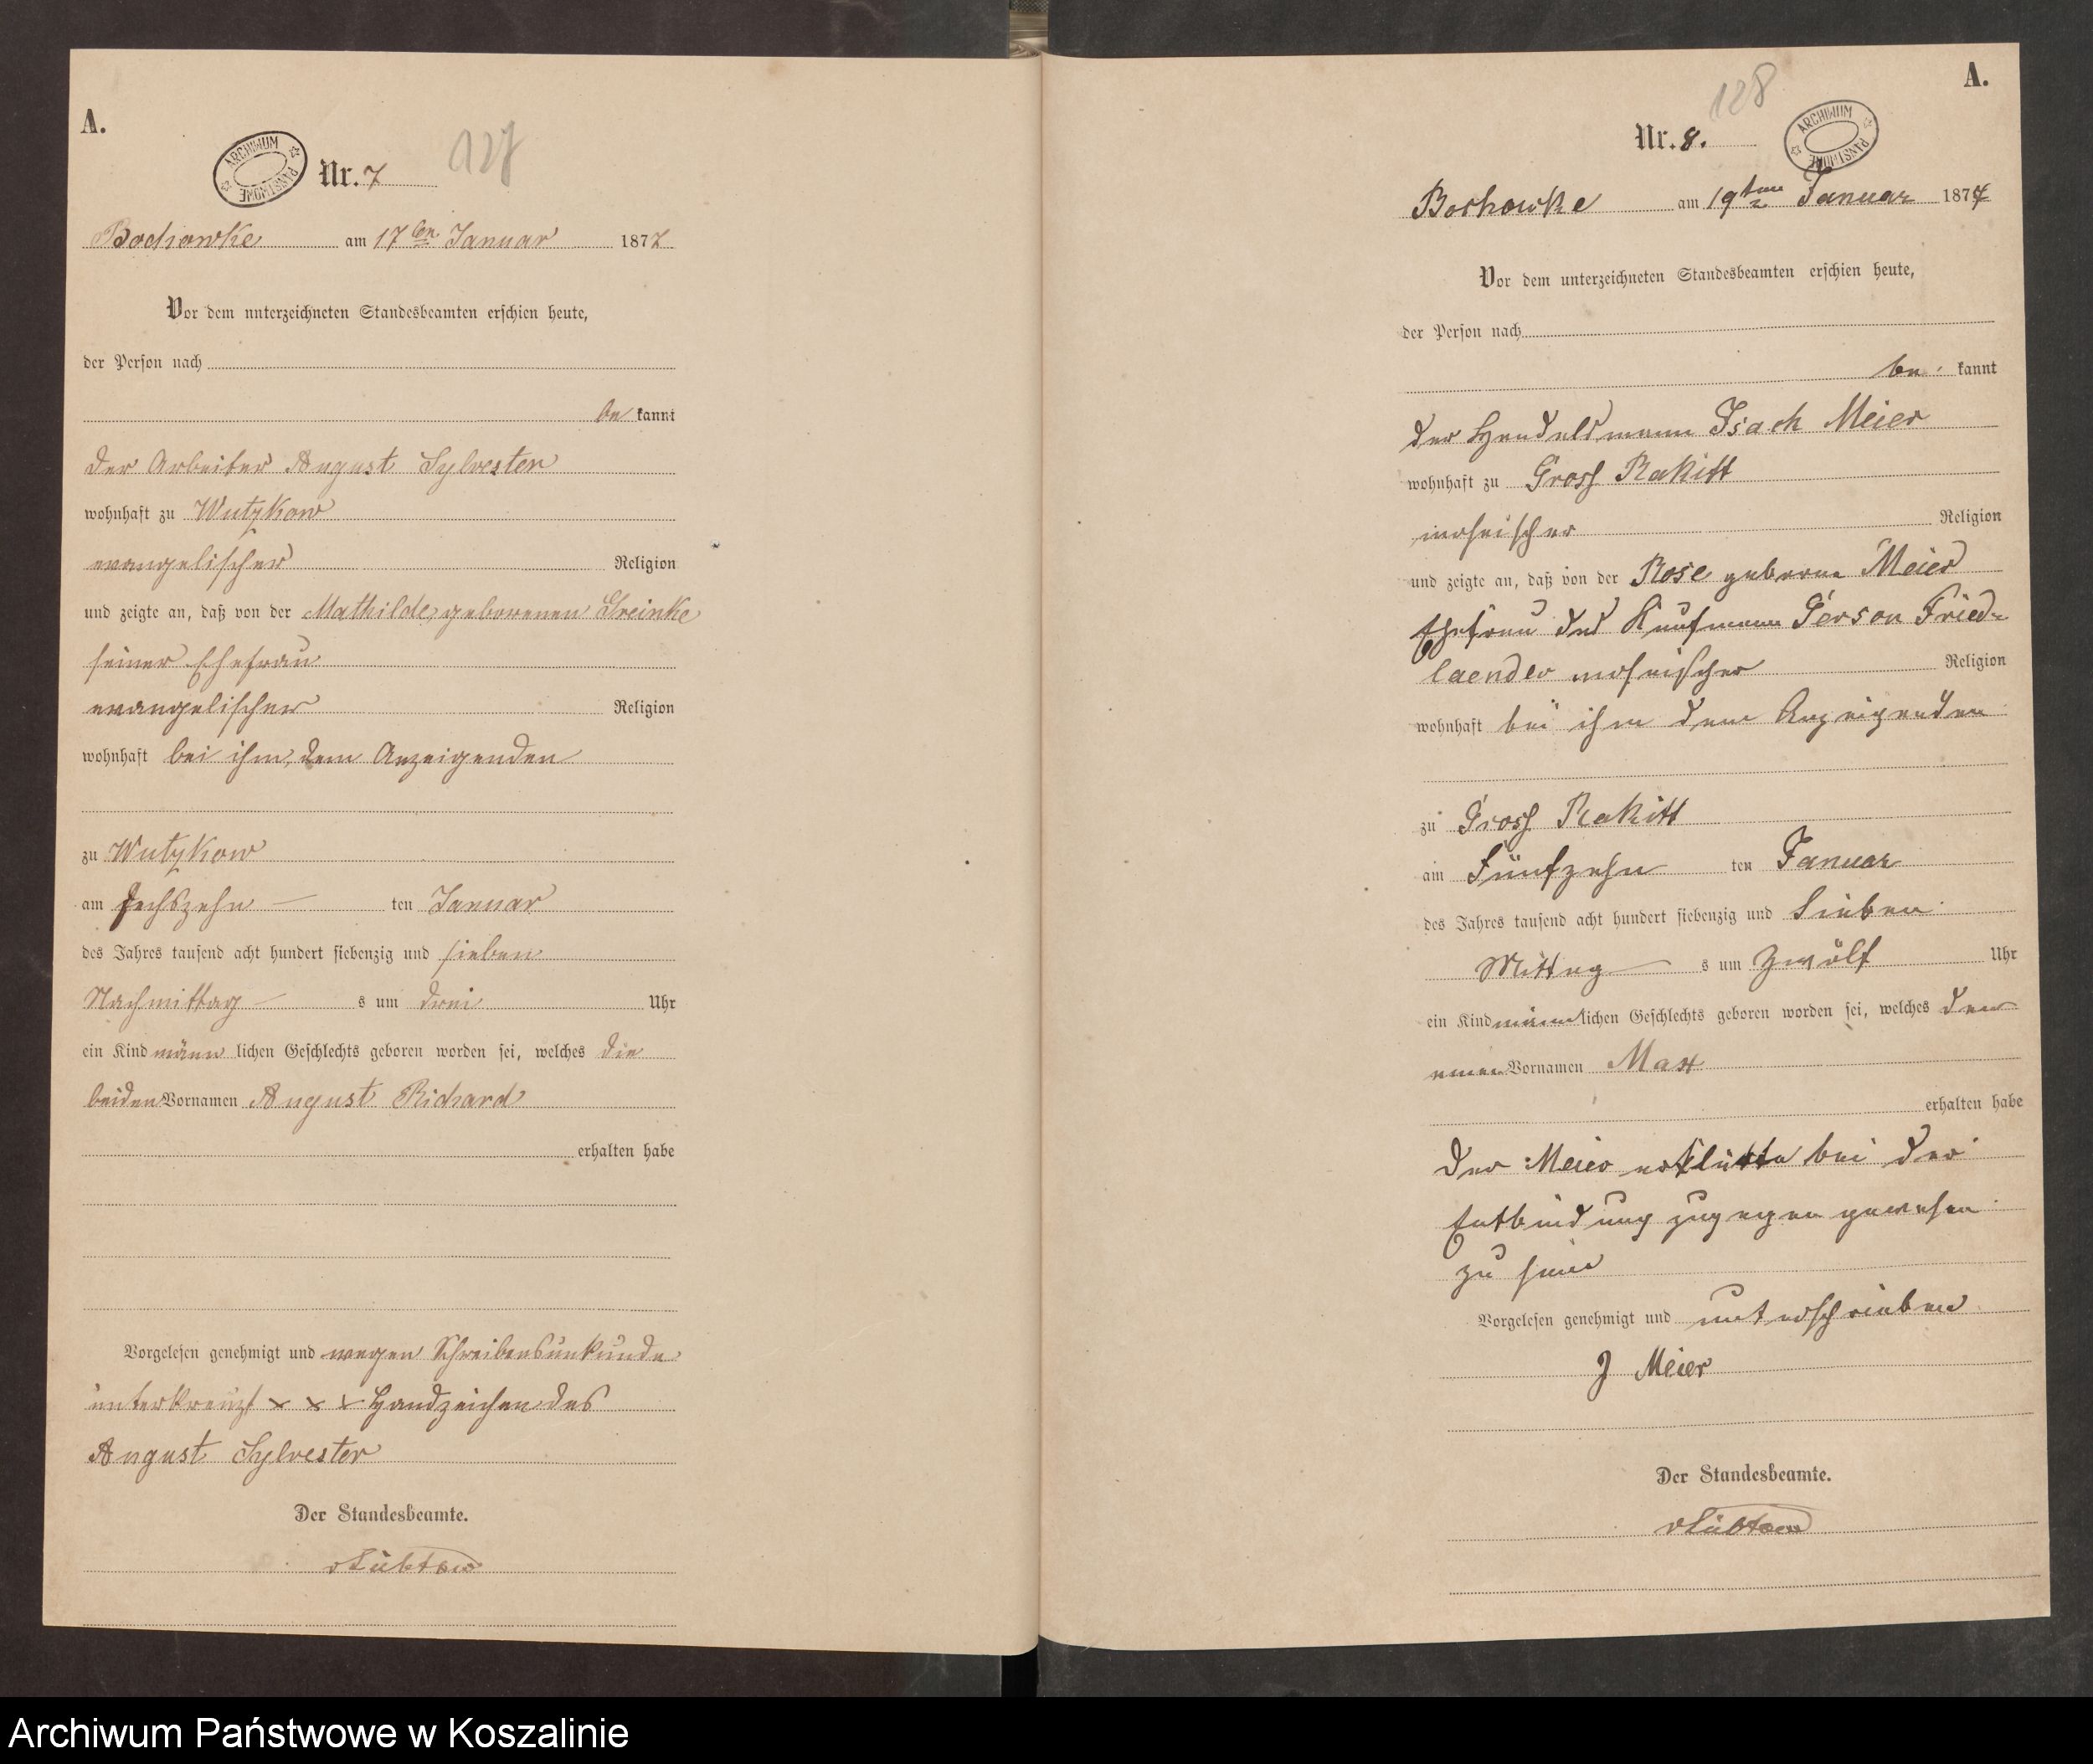 A.
ARCHIWUM PAŃSTWOWE
Nr. 7
127
Bochowke am 17ten Januar 1877
Vor dem unterzeichneten Standesbeamten erschien heute,
der Person nach
be kannt
der Arbeiter August Sylvester
wohnhaft zu Wutzkow
evangelischer Religion
und zeigte an, daß von der Mathilde, geborenen Greinke
seiner Ehefrau
evangelischer Religion
wohnhaft bei ihm, dem Anzeigenden
zu Wutzkow
am sechszehn ten Januar
des Jahres tausend acht hundert siebenzig und sieben
Nachmittag s um drei Uhr
ein Kind männ lichen Geschlechts geboren worden sei, welches die
beiden Vornamen August Richard
erhalten habe
Vorgelesen genehmigt und wegen Schreibensunkunde
unterkreuzt x x x Handzeichen des
August Sylvester
Der Standesbeamte.
vLübtow
A.
128
ARCHIWUM PAŃSTWOWE
Nr. 8.
Bochowke am 19ten Januar 1877
Vor dem unterzeichneten Standesbeamten erschien heute,
der Person nach
be kannt
der Handelsmann Isach Meier
wohnhaft zu Gross Rakitt
mosaischer Religion
und zeigte an, daß von der Rose geborne Meier
Ehefrau des Kaufmann Gerson Fried-
laender mosaischer Religion
wohnhaft bei ihm dem Anzeigenden
zu Gross Rakitt
am Fünfzehn ten Januar
des Jahres tausend acht hundert siebenzig und Sieben
Mittag s um Zwölf Uhr
ein Kind männ lichen Geschlechts geboren worden sei, welches den
einen Vornamen Max
erhalten habe
der Meier erklärte bei der
Entbindung zugegen gewesen
zu sein
Vorgelesen genehmigt und unterschrieben
J Meier
Der Standesbeamte.
vLübtow
Archiwum Państwowe w Koszalinie